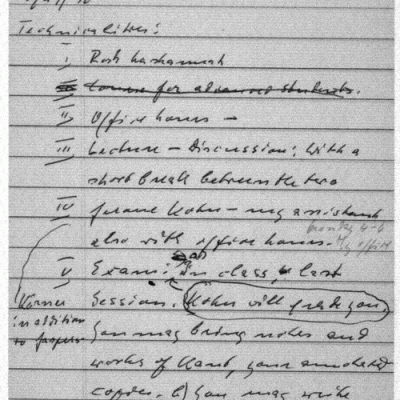 Technicalities:
I Rosh hashannah
Course for advanced students.
II Office hours –
III Lecture – Discussion: With a
short break between the two
IV Jerome Kohn – my assistant
also with office hours. Monday 4-6 My office
V Exam: a) In class, last
Session. Kohn will grade you.
in addition
to
You may bring notes and
works of Kant, your annotated
copies. b) You may write